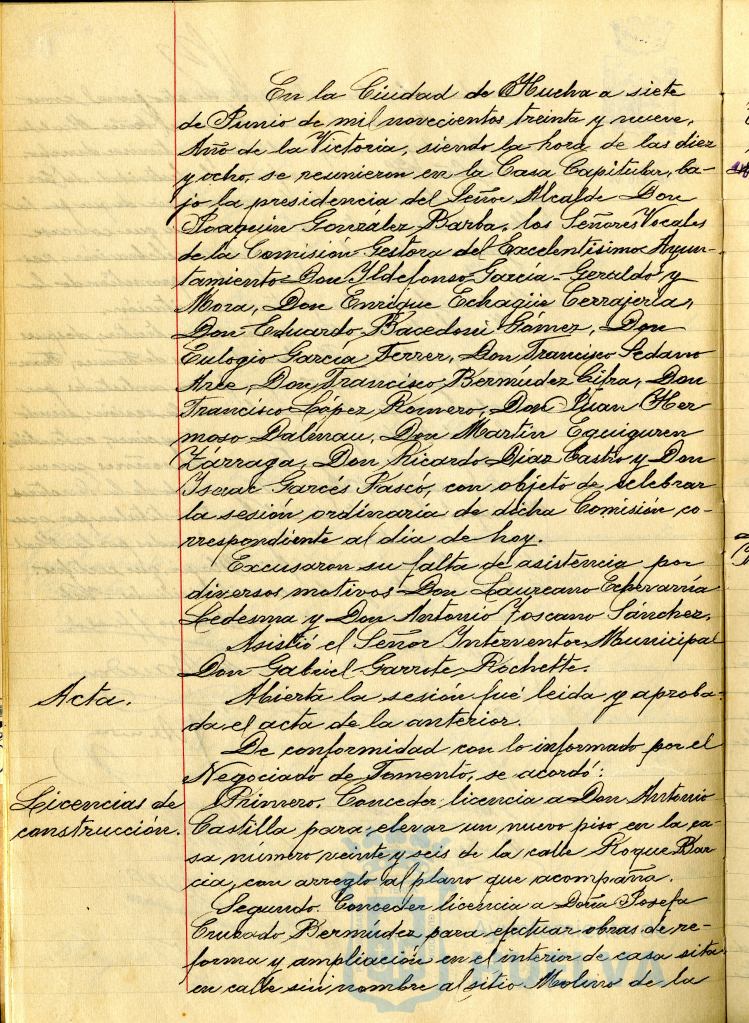 En la Ciudad de Huelva a siete
de Junio de mil novecientos treinta y nueve,
Año de la Victoria, siendo la hora de las diez
y ocho, se reunieron en la Casa Capitular, ba-
jo la presidencia del Señor Alcalde Don
Joaquín González Barba, los Señores Vocales
de la Comisión Gestora del Excelentísimo Ayun-
tamiento Don Ildefonso García-Geraldo y
Mora, Don Enrique Echagüe Cerrajería,
Don Eduardo Gómez, Don
Eulogio García Ferrer, Don Francisco Sedano
Arce, Don Francisco Bermúdez Cifra, Don
Francisco López Romero, Don Juan Her-
moso Dalmau, Don Martín Eguiguren
Zárraga, Don Ricardo Díaz Castro y Don
Isaac Garcés Fascó, con objeto de celebrar
la sesión ordinaria de dicha Comisión co-
rrespondiente al día de hoy.
Excusaron su falta de asistencia por
diversos motivos Don Laureano Echevarría
Ledesma y Don Antonio Toscano Sánchez.
Asistió el Señor Interventor Municipal
Don Gabriel Garrote Rochette.
Acta.
Abierta la sesión fué leída y aproba-
da el acta de la anterior.
De conformidad con lo informado por el
Negociado de Fomento, se acordó:
Licencias de
construcción.
Primero. Conceder licencia a Don Antonio
Castilla para elevar un nuevo piso en la ca-
sa número veinte y seis de la calle Roque Bar-
cia, con arreglo al plano que acompaña.
Segundo. Conceder licencia a Doña Josefa
Cruzado Bermúdez para efectuar obras de re-
forma y ampliación en el interior de casa sita
en calle sin nombre al sitio Molino de la
HUELVA